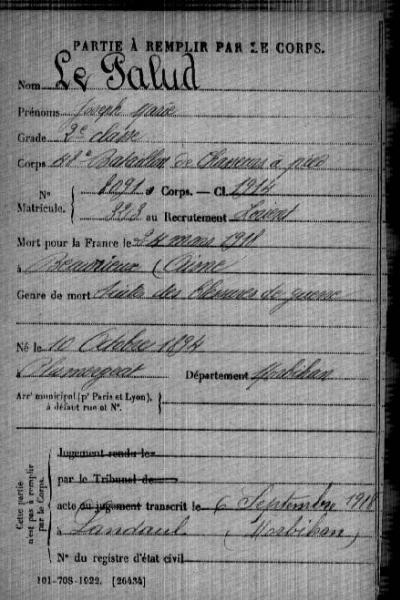 PARTIE À REMPLIR PAR LE CORPS.
Nom Le Palud
Prénoms Joseph Marie
Grade 2e classe
Corps 48e Bataillon de Chasseurs à pied
N° Matricule. { 8091 au Corps. — Cl. 1914
323 au Recrutement Lorient
Mort pour la France le 24 mars 1918
à Beaurieux (Aisne
Genre de mort Suites des blessures de guerre
Né le 10 Octobre 1894
à Plumergat Département Morbihan
Arrt municipal (pr Paris et Lyon), à défaut rue et N°. {
Cette partie n'est pas à remplir par le Corps.
Jugement rendu le
par le Tribunal de
acte ou jugement transcrit le 6 Septembre 1918
à Landaul (Morbihan)
N° du registre d'état civil
101-708-1922. [26434]